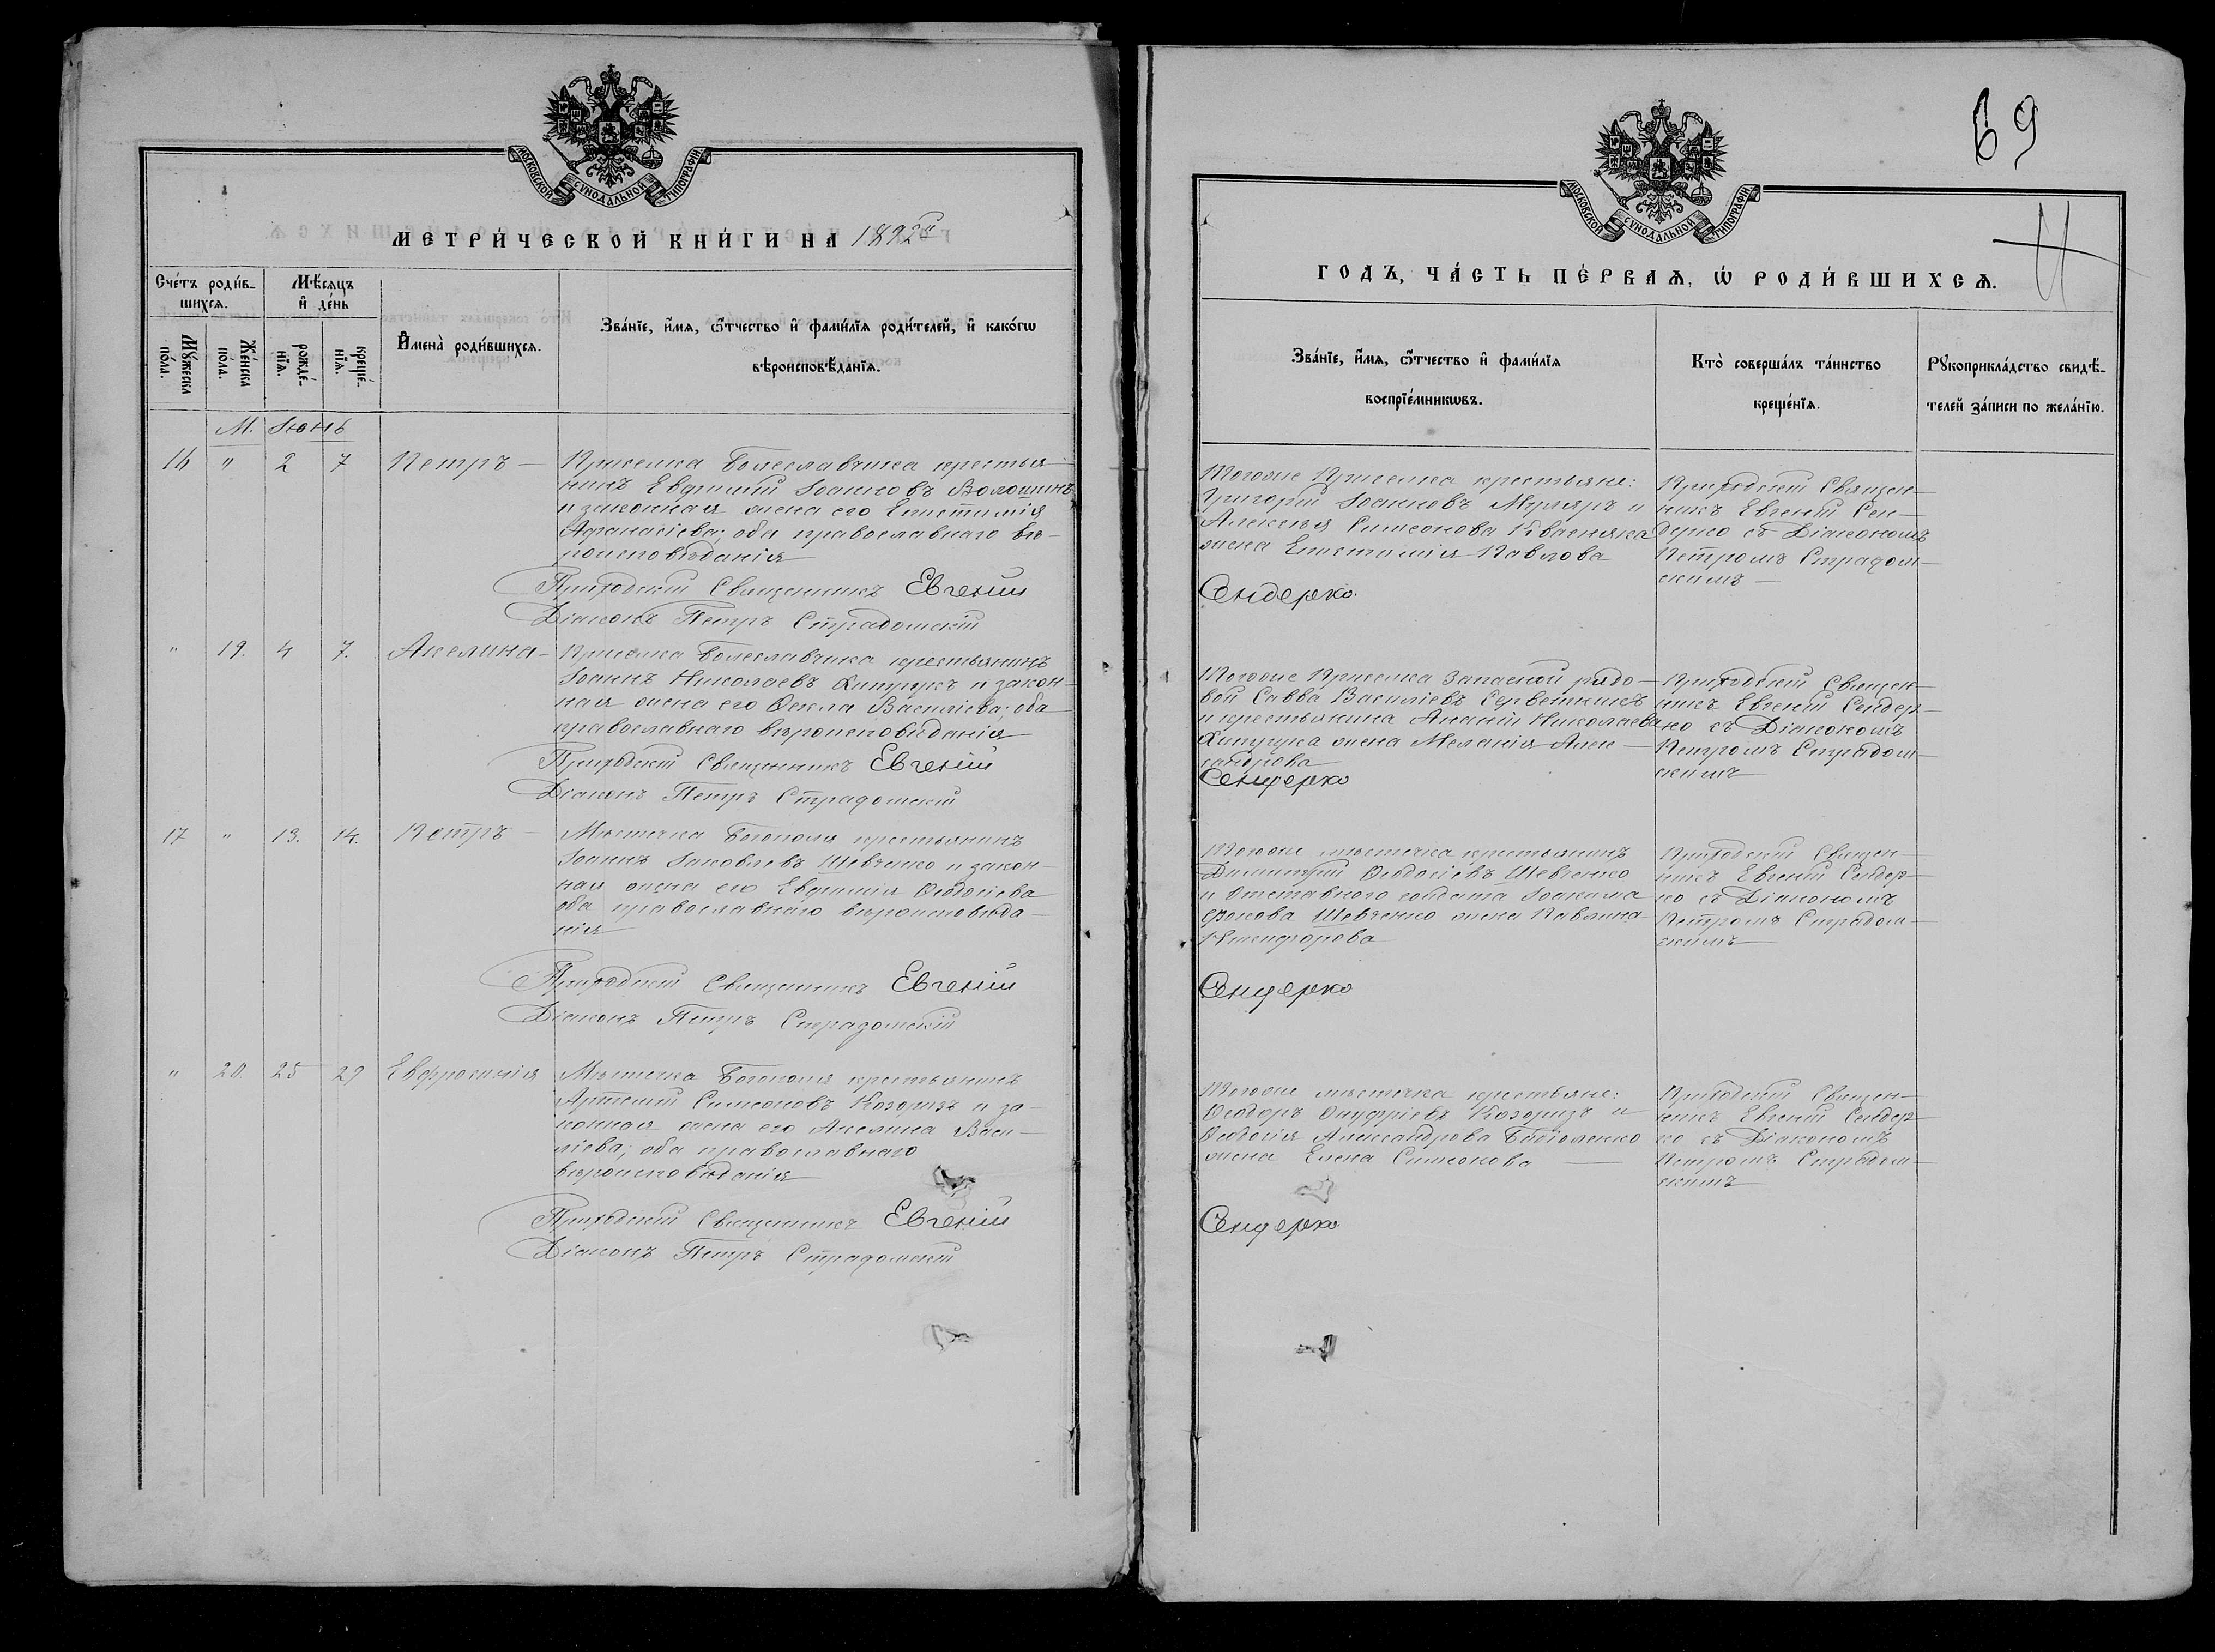 МОСКОВСКОЙ СѴНОДАЛЬНОЙ ТИПОГРАФІИ
МЕТРИ́ЧЕСКОЙ КНИ́ГИ НА 1892й
Сче́тъ роди́в-
шихсѧ.
Мѣ́сѧцъ
и҆ де́нь
Мꙋ́жеска
по́ла.
Же́нска
по́ла.
рожде́-
нїѧ.
креще́-
нїѧ.
И҆мена̀ роди́вшихсѧ.
Зва́нїе, и҆́мѧ, ѻ҆́тчество и҆ фами́лїѧ роди́телей, и҆ како́гѡ
вѣроисповѣ́данїѧ.
М. Іюнь
16 " 2 7 Петръ — Приселка Болеславчика крестья-
нинъ Евфимій Іоанновъ Волошинъ
и законная жена его Епистимія
Афанасіева; оба православнаго вѣ-
роисповѣданія
Приходскій Священникъ Евгеній
Діаконъ Петръ Страдомскій
" 19. 4 7. Акелина — Приселка Болеславчика крестьянинъ
Іоаннъ Николаевъ и закон-
ная жена его Ѳекла Василіева; оба
православнаго вѣроисповѣданія
Приходскій Священникъ Евгеній
Діаконъ Петръ Страдомскій
17 " 13. 14. Петръ — Мѣстечка Богополя крестьянинъ
Іоаннъ Іаковлевъ Шевченко и закон-
ная жена его Евфимія Ѳеодосіева
оба православнаго вѣроисповѣда-
нія
Приходскій Священникъ Евгеній
Діаконъ Петръ Страдомскій
" 20. 25 29 Евфросинія Мѣстечка Богополя крестьянинъ
Артемій Симеоновъ Козоризъ и за-
конная жена его Акелина Васи-
ліева; оба православнаго
вѣроисповѣданія
Приходскій Священникъ Евгеній
Діаконъ Петръ Страдомскій
69
МОСКОВСКОЙ СѴНОДАЛЬНОЙ ТИПОГРАФІИ
ГОДЪ, ЧА́СТЬ ПЕ́РВАѦ, Ѡ҆ РОДИ́ВШИХСѦ.
Зва́нїе, и҆́мѧ, ѻ҆́тчество и҆ фами́лїѧ
воспрїе́мникѡвъ.
Кто̀ соверша́лъ та́инство
креще́нїѧ.
Рꙋкоприкла́дство свидѣ́-
телей за́писи по жела́нїю.
Тогоже Приселка крестьяне:
Григорій Іоанновъ Муляръ и
Алексѣя Симеонова Квасняка
жена Епистимія Павлова
Приходскій Священ-
никъ Евгеній Сен-
дерко съ Діакономъ
Петромъ Страдом-
скимъ —
Сендерко.
Тогоже Приселка Запасной рядо-
вой Савва Василіевъ
и крестьянина Ананія Николаева
жена Меланія Алек-
сандрова
Приходскій Священ-
никъ Евгеній Сендер-
ко съ Діакономъ
Петромъ Страдом-
скимъ
Сендерко
Тогоже мѣстечка крестьянинъ
Димитрій Ѳеодосіевъ Шевченко
и отставного солдата Іоакима
Фокова Шевченко жена Павлина
Никифорова
Приходскій Священ-
никъ Евгеній Сендер-
ко съ Діакономъ
Петромъ Страдом-
скимъ
Сендерко
Тогоже мѣстечка крестьяне:
Ѳеодоръ Онуфріевъ Козоризъ и
Ѳеодосія Александрова
жена Елена Симеонова —
Приходскій Священ-
никъ Евгеній Сендер-
ко съ Діакономъ
Петромъ Страдом-
скимъ
Сендерко